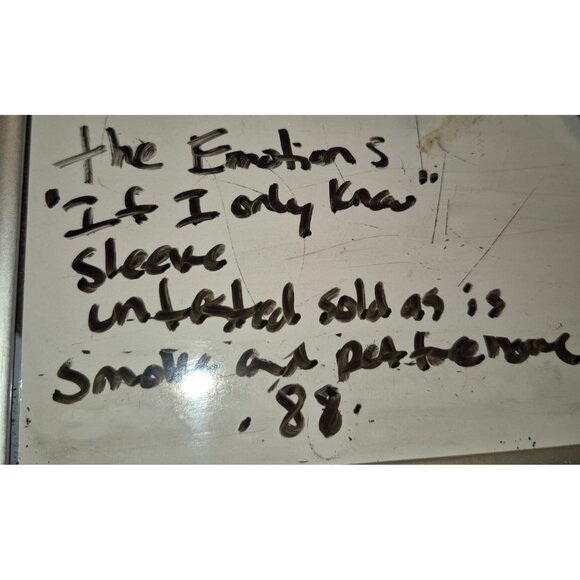 the Emotions
"If I only knew"
sleeve
untested sold as is
smoke and pet free home
.88.